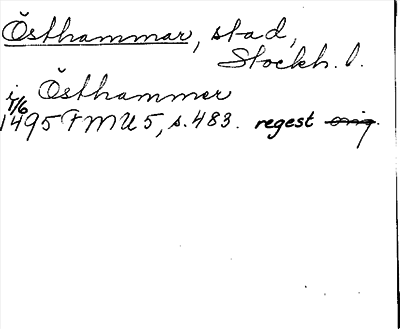 Östhammar, stad,
Stockh. l.
i Östhammer
1/6
1495 FMU 5, s. 483. regest orig.